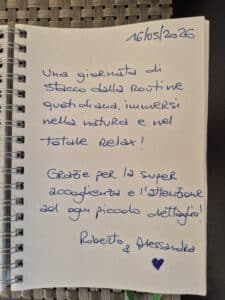 16/05/2026
Una giornata di
stacco dalla routine
quotidiana, immersi
nella natura e nel
totale relax!
Grazie per la super
accoglienza e l'attenzione
ad ogni piccolo dettaglio!
Roberto & Alessandra